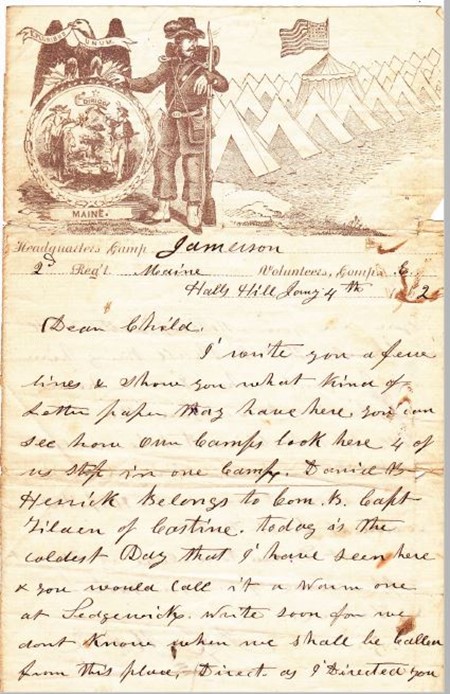 E PLURIBUS UNUM
DIRIGO
MAINE.
Headquarters Camp Jamerson
2d Reg't Maine Volunteers, Comp'y E.
Halls Hill Jany 4th 2
Dear Child.
I write you a few
lines & show you what kind of
Letter paper thay have here, you can
see how Our Camps look here 4 of
us in one Camp. Daniel
Herrick Belongs to Com. B. Capt
Tilden of Castine. today is the
coldest Day that I have seen here
& you would Call it a Warm one
at Sedgewick. write soon for we
dont Know when we shall be Called
from this place, Direct as I Directed you